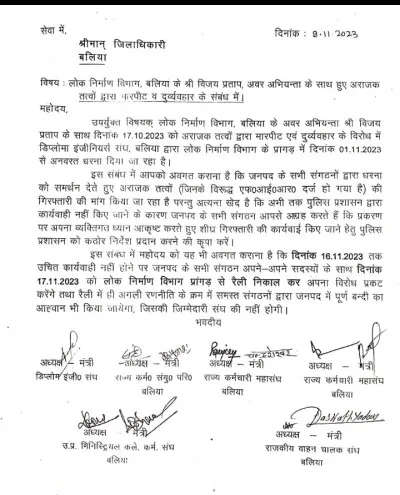 सेवा में,
दिनांक : 8.11.2023
श्रीमान् जिलाधिकारी
बलिया
विषय : लोक निर्माण विभाग, बलिया के श्री विजय प्रताप, अवर अभियन्ता के साथ हुए अराजक
तत्वों द्वारा मारपीट व दुर्व्यवहार के संबंध में।
महोदय,
उपर्युक्त विषयक लोक निर्माण विभाग, बलिया के अवर अभियन्ता श्री विजय
प्रताप के साथ दिनांक 17.10.2023 को अराजक तत्वों द्वारा मारपीट एवं दुर्व्यवहार के विरोध में
डिप्लोमा इंजीनियर्स संघ, बलिया द्वारा लोक निर्माण विभाग के प्रागड़ में दिनांक 01.11.2023
से अनवरत धरना दिया जा रहा है।
इस संबंध में आपको अवगत कराना है कि जनपद के सभी संगठनों द्वारा धरना
को समर्थन देते हुए अराजक तत्वों (जिनके विरूद्ध एफ0आई0आर0 दर्ज हो गया है) की
गिरफ्तारी की मांग किया जा रहा है परन्तु अत्यन्त खेद है कि अभी तक पुलिस प्रशासन द्वारा
कार्यवाही नहीं किए जाने के कारण जनपद के सभी संगठन आपसे आग्रह करते हैं कि प्रकरण
पर अपना व्यक्तिगत ध्यान आकृष्ट करते हुए शीघ्र गिरफ्तारी की कार्यवाई किए जाने हेतु पुलिस
प्रशासन को कठोर निर्देश प्रदान करने की कृपा करें।
इस संबंध में महोदय को यह भी अवगत कराना है कि दिनांक 16.11.2023 तक
उचित कार्यवाही नहीं होने पर जनपद के सभी संगठन अपने–अपने सदस्यों के साथ दिनांक
17.11.2023 को लोक निर्माण विभाग प्रांगड़ से रैली निकाल कर अपना विरोध प्रकट
करेंगे तथा रैली में ही अगली रणनीति के क्रम में समस्त संगठनों द्वारा जनपद में पूर्ण बन्दी का
आह्वान भी किया जायेगा, जिसकी जिम्मेदारी संघ की नहीं होगी।
भवदीय
अध्यक्ष – मंत्री
डिप्लोम इंजी0 संघ
अध्यक्ष – मंत्री
राज्य कर्म0 संयु0 परि0
बलिया
अध्यक्ष – मंत्री
राज्य कर्मचारी महासंघ
बलिया
अध्यक्ष – मंत्री
राज्य कर्मचारी महासंघ
बलिया
अध्यक्ष मंत्री
उ.प्र. मिनिस्ट्रियल कले. कर्म. संघ
बलिया
अध्यक्ष – मंत्री
राजकीय वाहन चालक संघ
बलिया